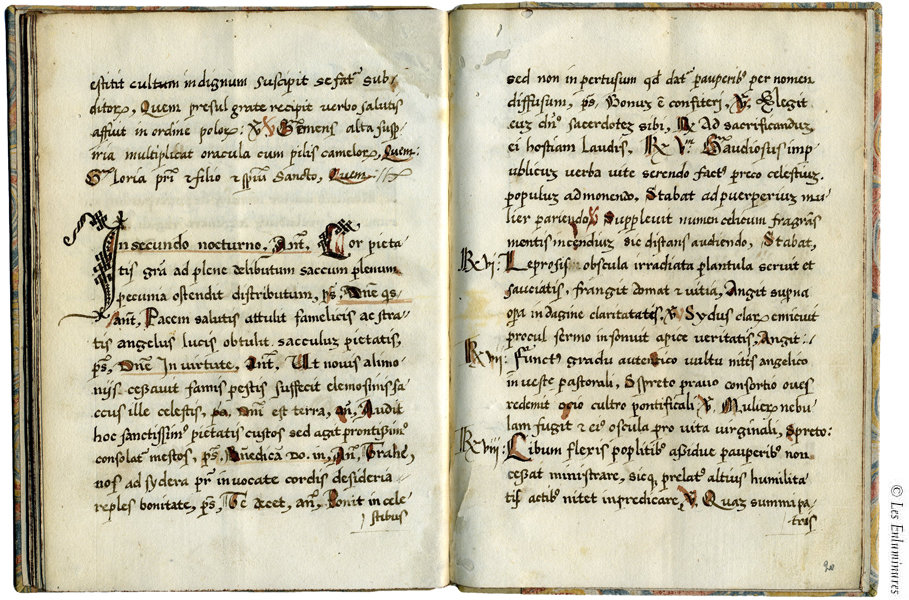 estitit cultum indignum suscipit se fatr̃ sub-
ditoꝝ, Quem presul grate recipit verbo salutis
affluit in ordine poloꝝ: ꝟ alta
multiplicat oracula cum pilis cameloꝝ, Quem:
Gloria pr̃i & filio & sp̃ui Sancto, Quem:
In secundo nocturno. Añt, Cor pieta-
tis grã ad plene delibutum saccum plenum
pecunia ostendit distributum, ps, Dñe qs
añt, Pacem salutis attulit famelicis ac stra-
tis angelus lucis obtulit sacculuz pietatis,
ps, Dñe In virtute, Añt, Ut novis alimo-
niis cessavit famis pestis suffecit elemosinis sa-
ccus ille celestis, ps, Dñi est terra, añ, Audit
hoc sanctissimꝰ pietatis custos sed agit prontissimꝰ
consolatr̃ mestos, ps, Bñedicã Do. in, Añ, Trahe,
nos ad sydera pr̃ invocate cordis desideria
reples bonitate, ps, Te decet, añ, Ponit in cele
stibus
sed non in pertusum qd datr̃ pauperibꝰ per nomen
diffusum, ps, Bonuz ẽ confiteri, ꝟ. Elegit
euz dñs sacerdotez sibi, ℟ Ad sacrificanduz
ei hostiam laudis, ℟ V. Gaudiosius imp-
ublicuz verba vite serendo factꝰ preco celestiuz,
populuz admonendo, Stabat ad puerperiuz mu-
lier pariendo ꝟ Supplevit numen celicum fragrãs
mentis incendiuz sic distans audiendo, Stabat,
℟ vi: Leprosis obscula irradiata plantula servit et
sauciatis, frangit domat & vitia, Angit supna
opa indagine claritatatis, ꝟ Sydus claꝝ emicuit
procul sermo insonuit apice veritatis, Angit:
℟ vii: Functꝰ gradu autentico vultu mitis angelico
in veste pastorali, Spreto pravo consortio oves
redemit ocio cultro pontificali ꝟ. Mulieꝝ nebu
lam fugit & eiꝰ oscula pro vita virginali, Spreto:
℟ viii: Libum flexis poplitibꝰ assidue pauperibꝰ non
cessat ministrare, sicq, prelatꝰ altius humilita
tis actibꝰ nitet inpredicare, ꝟ. Quaz summi pa-
tris
© Les Enluminures